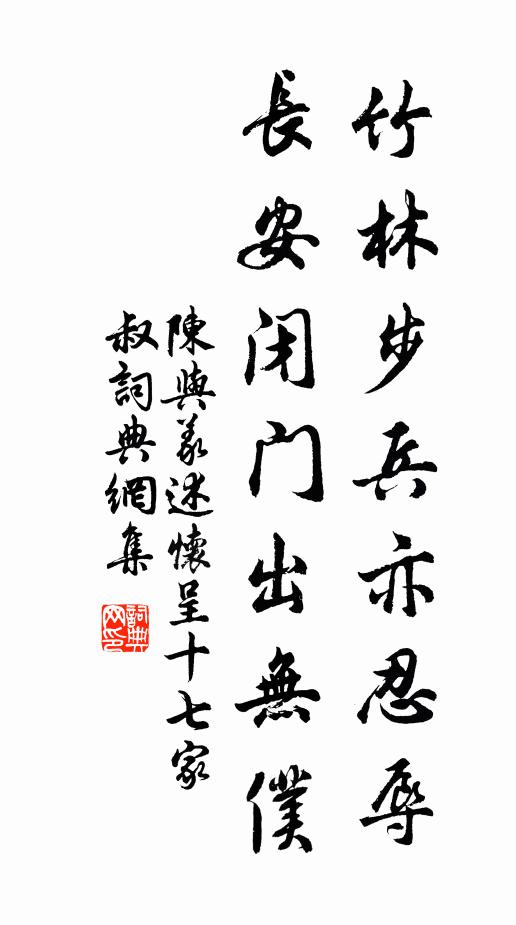 竹林步兵亦忍辱
長安閉門出無僕
陳與義述懷呈十七家
叔詞典網集
詞典網印